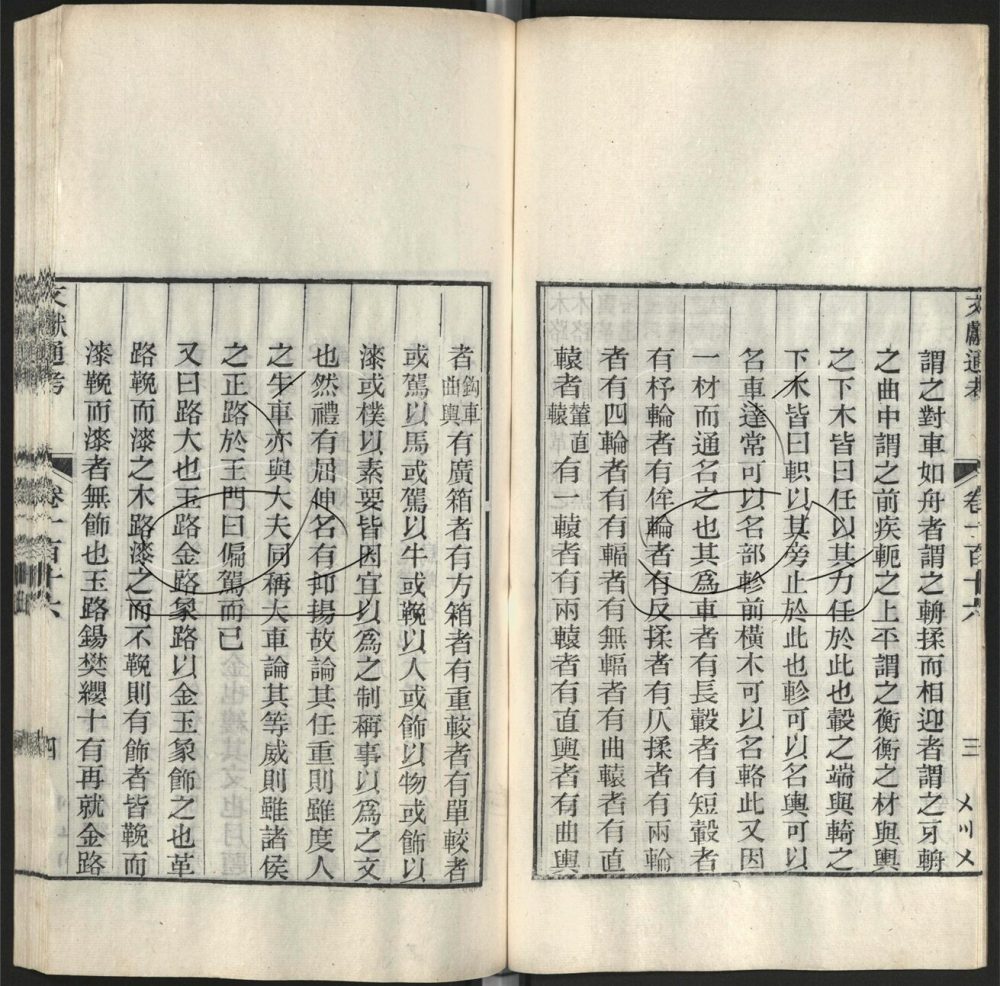 文獻通考 卷一百十六 三 〤〣〤
謂之對車如舟者謂之輈揉而相迎者謂之牙輈
之曲中謂之前疾軛之上平謂之衡衡之材與輿
之下木皆曰任以其力任於此也轂之端與輢之
下木皆曰軹以其旁止於此也軫可以名輿可以
名車達常可以名部軫前橫木可以名輅此又因
一材而通名之也其爲車者有長轂者有短轂者
有杼輪者有侔輪者有反揉者有仄揉者有兩輪
者有四輪者有有輻者有無輻者有曲轅者有直
轅者輂直轅有一轅者有兩轅者有直輿者有曲輿
者鈎車曲輿有廣箱者有方箱者有重較者有單較者
或駕以馬或駕以牛或輓以人或飾以物或飾以
漆或樸以素要皆因宜以爲之制稱事以爲之文
也然禮有屈伸名有抑揚故論其任重則雖庶人
之牛車亦與大夫同稱大車論其等威則雖諸侯
之正路於王門曰偏駕而已
又曰路大也玉路金路象路以金玉象飾之也革
路鞔而漆之木路漆之而不鞔則有飾者皆鞔而
漆鞔而漆者無飾也玉路鍚樊纓十有再就金路
文獻通考 卷一百十六 四